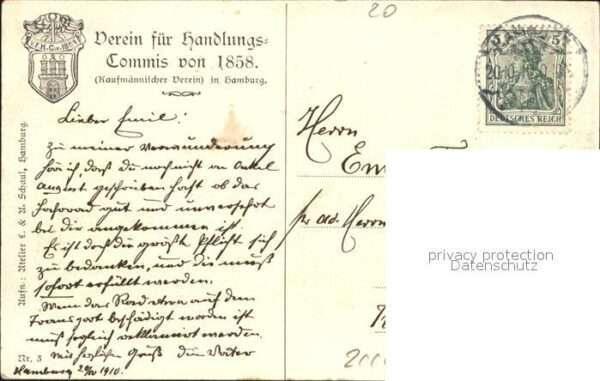 V.f.H.-C.v.1858
Verein für Handlungs-
Commis von 1858.
(Kaufmännischer Verein) in Hamburg.
Lieber Emil!
Zu meiner Verwunderung
hör ich, daß du noch nicht an Onkel
August geschrieben hast ob das
Fahrrad gut und unversehrt
bei dir angekommen ist.
Es ist doch die größte Pflicht sich
zu bedanken, und die muß
sofort erfüllt werden.
Wenn das Rad etwa auf dem
Transport beschädigt worden ist
muß sogleich reklamirt werden.
Mit herzlichem Gruß dein Vater
Hamburg 20/10 1910.
Nr. 3
Aufn.: Atelier E. & A. Schaul, Hamburg.
20
5 5
DEUTSCHES REICH
20.10.10
Herrn
Em
pr. ad. Herrn
privacy protection
Datenschutz